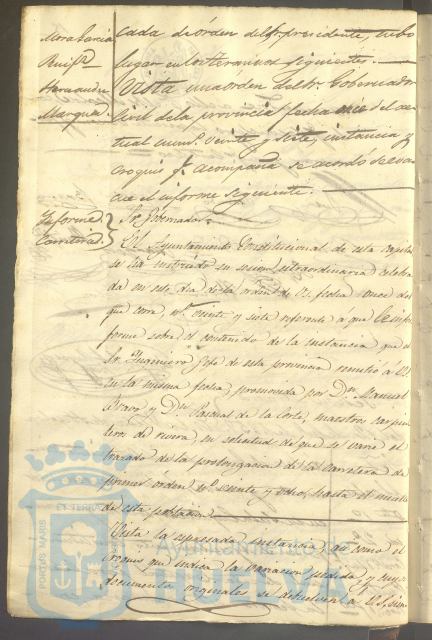 Mora Garcia
Ruiz
Hernandez
Marquez
cada de órden del Sr. presidente, tubo
lugar en los terminos siguientes.
Vista una órden del Sr. Gobernador
Civil de la provincia fecha once del ac-
tual num. veinte y siete, instancia y
croquis q. acompaña se acordó se eva-
cue el informe siguiente.
Informe
Carretera
Sr. Gobernador
El Ayuntamiento Constitucional de esta capital
se ha instruido en sesion extraordinaria celebra-
da en este dia de la órden de V.S. fecha once del
que corre, nº veinte y siete referente a que in-
forme sobre el contenido de la instancia que el
Sr. Ingeniero Gefe de esta provincia remitió á V.S.
en la misma fecha, promovida por Dn. Manuel
Bravo y Dn. Pascual de la Corte, maestros carpin-
teros de rivera, en solicitud de que se varie el
trazado de la prolongacion de la carretera de
primer orden nº veinte y ocho, hasta el muelle
de esta poblacion.
Vista la espresada instancia, asi como el
croquis que indica la variacion pedida, y cuyos
documentos originales se debuelven á V.S.,
PORTUS MARIS
ET TERRAE
Ayuntamiento de
HUELVA